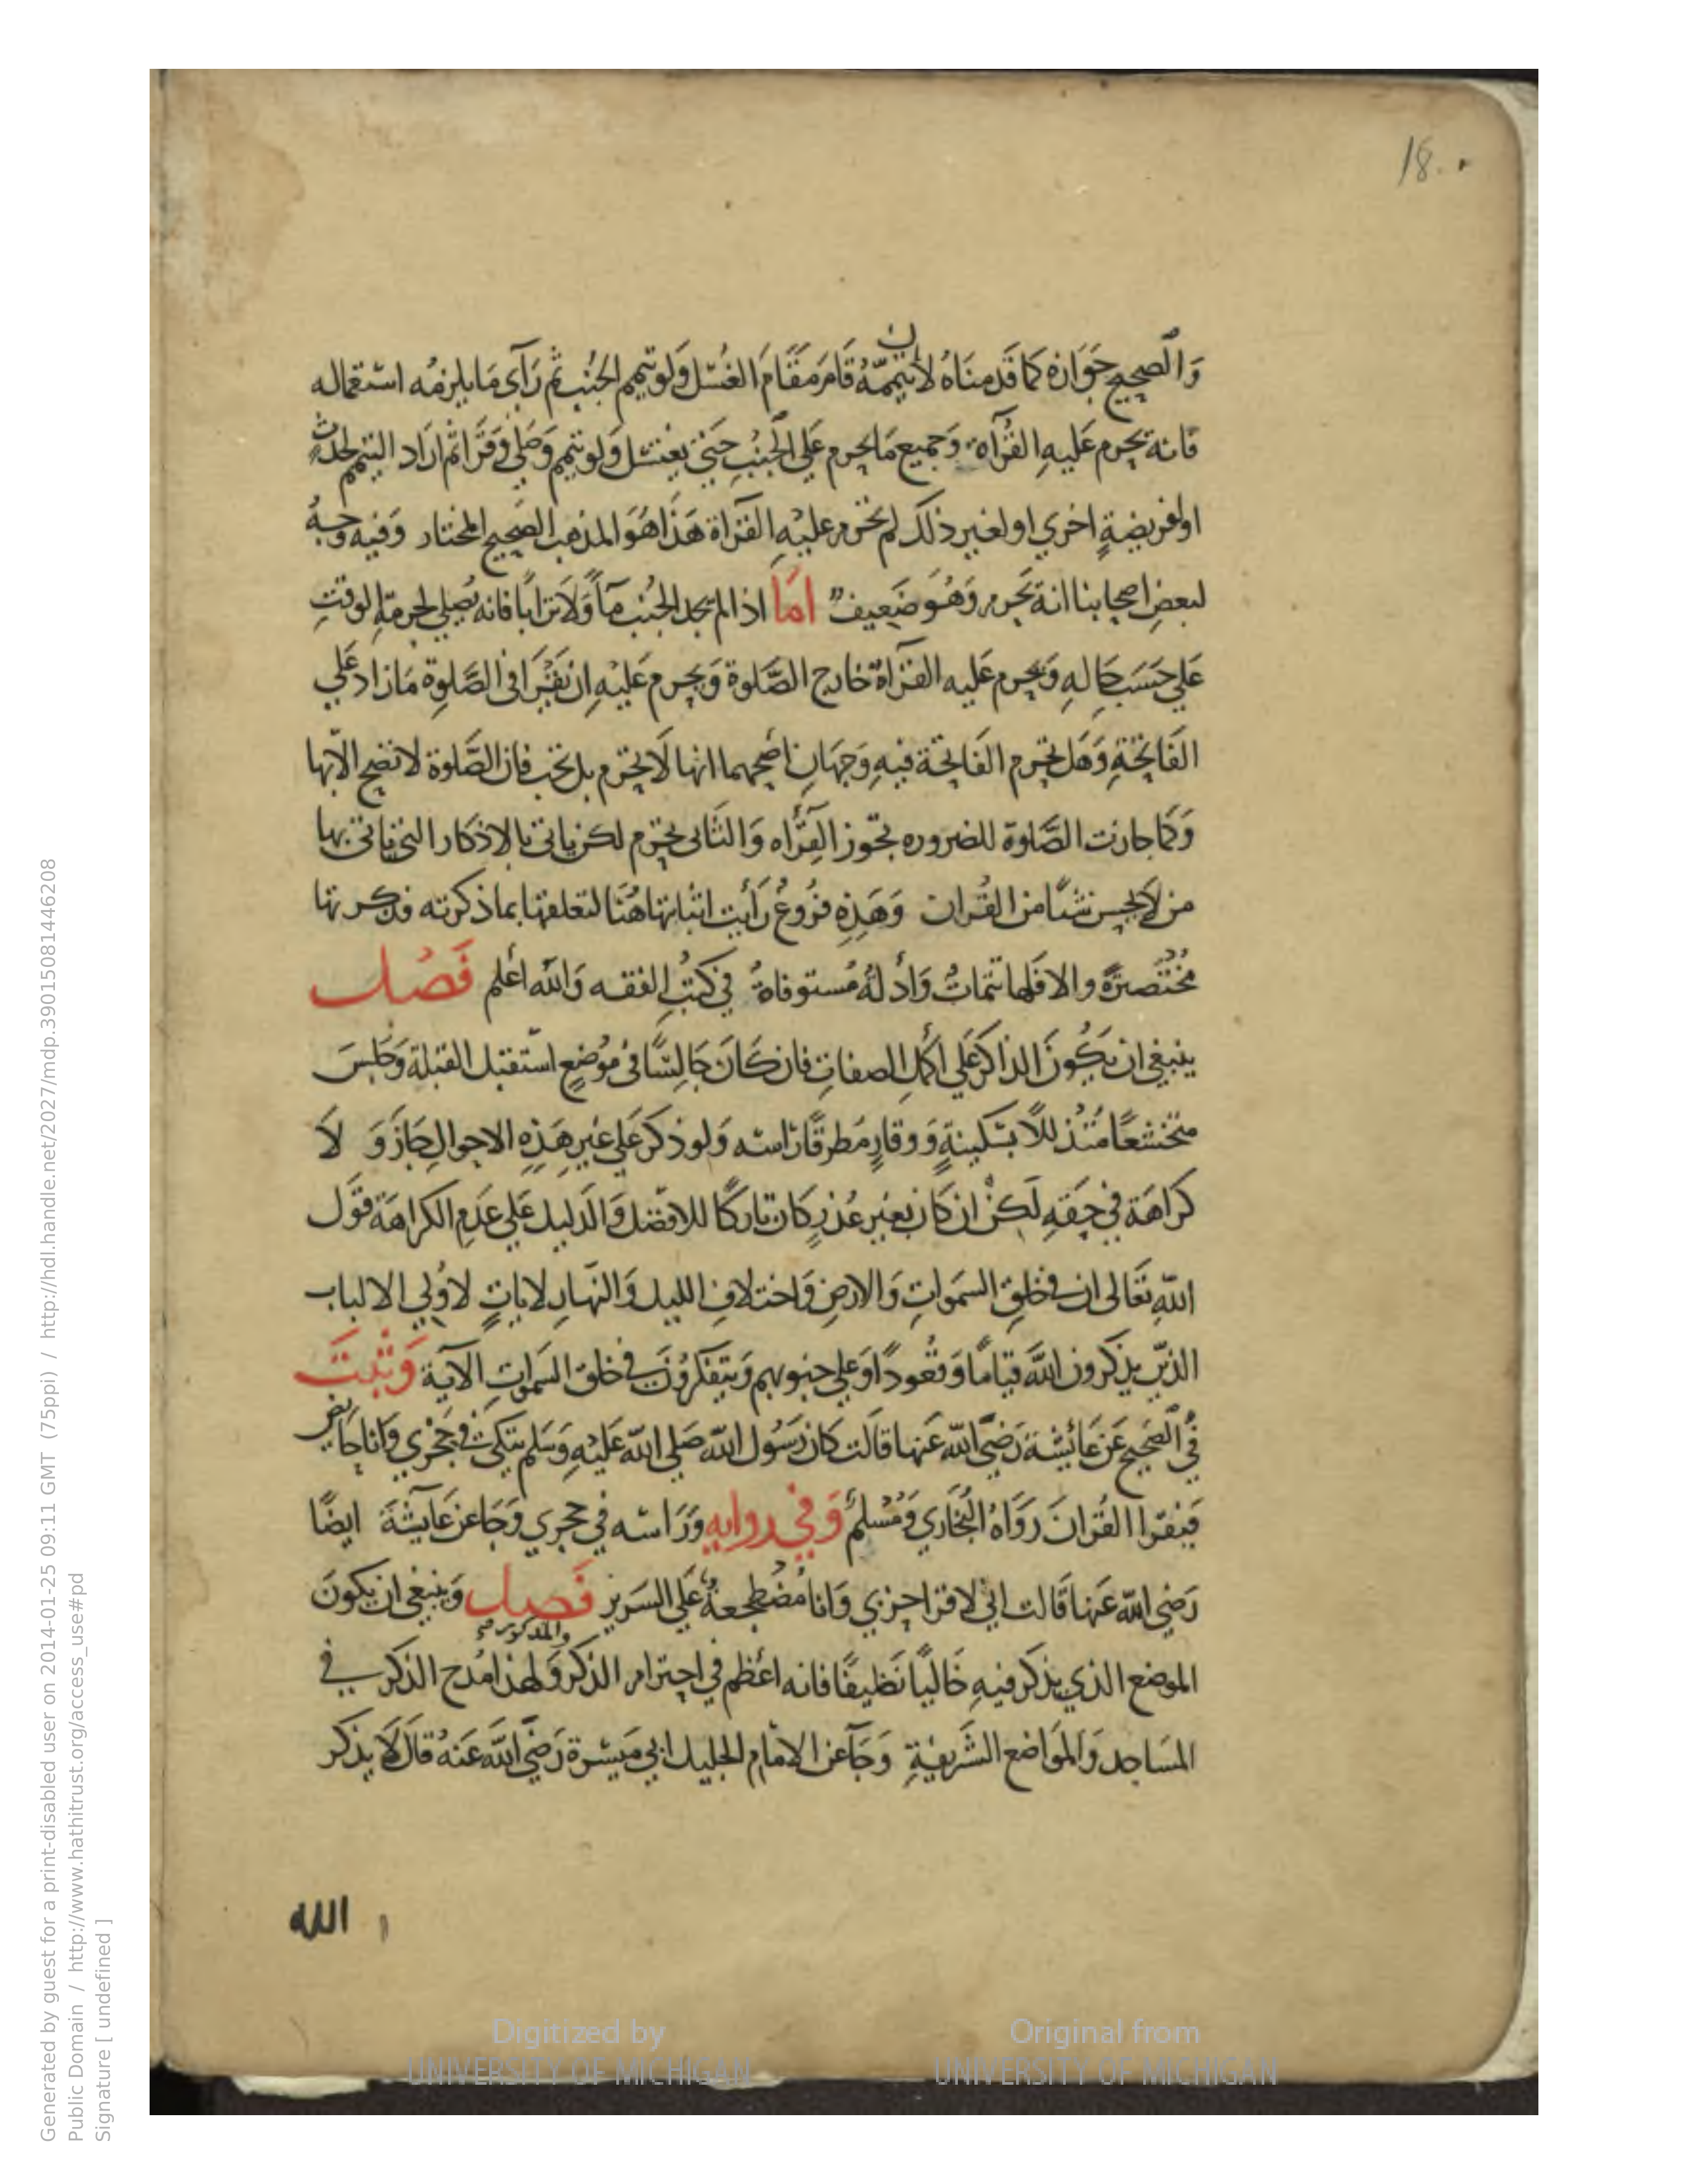 18
وَالصحيح جَوَازه كما قَدمنَاهُ لأن تيممّهُ قَامَ مَقَامَ الغُسْل وَلو تيمم الجُنب ثم رَآى مَا يلزمُه استعماله
فانه يحرم عَليهِ القُرآة وَجميع مَا يحرم عَلي الجنُبِ حَتي يَغتسل وَلو تيمم وَصَلي وَقرَا ثم ارَاد التيمم لحدثٍ
او لفريضةٍ اخري او لغير ذلك لم تحرم عليْهِ القرَاة هَذَا هُوَ المذهب الصَحيح المختار وَفيه وَجهُ
لبعضِ اصحابنا انهُ يَحرم وَهُوَ ضَعِيفٌ امّا اذا لم يجد الجُنب مآً وَلَا ترَابًا فانه يُصلي لحرمَةِ الوقتِ
عَلي حَسَب حَالهِ وَيحرم عَليه القرَاةُ خارج الصَّلوة وَيحرم عَليْهِ ان يَقْرَا في الصَّلوة مَا زاد عَلي
الفَاتحَةِ وَهَل تحرم الفَاتحَة فيهِ وَجهَان اصَحهما انها لَا تحرم بل تجب فان الصَّلوة لا تصح الّا بها
وَكما جازت الصَّلوة للضروره تجَوز القِرَأه وَالثَانى تحرم لكن ياتى بالاذكار التى ياتى بها
من لَا يحسن شئًا من القُران وَهَذِهِ فرُوعُ رَأيت اثباتها هُنَا لتعلقها بما ذكرته فذكرتها
مُختَصرَةً والا فَلها تتمَاتُ وَادلةُ مُستوفاةُ في كتُبِ الفقه وَالله اعلم فَصْل
ينبغى ان يَكُونَ الذاكر عَلي اكمل الصفات فان كَانَ جَالسًا فى مَوْضعٍ استقبل القبلة وَجَلسَ
متخشعًا مُتَذللًا بسَكينةٍ وَوقارٍ مُطرقًا رَاسه وَلو ذكر عَلي غيرِ هَذِهِ الاحوالِ جَازَ وَ لَا
كرَاهَة في حَقهِ لَكنْ ان كَان بغير عُذرٍ كَان تاركًا للافضل وَالدَليل عَلي عَدَم الكراهَة قوَل
اللّهِ تَعَالى ان فى خلقِ السَموَاتِ وَالارضِ وَاختلافِ الليل وَالنهَار لاياتٍ لاُولي الالباب
الذين يذكرون اللَّه قيَامًا وَقعُودًا وَعلي جنوبهم وَيتفكرُونَ فى خلق السَموَاتِ الآية وَثبتَ
فى الصَحيح عَن عَائِشَة رَضيَ اللّه عَنهَا قَالت كان رَسُول اللّه صَلي اللّه عَليْهِ وَسَلم يتكئ في حَجْري وَانا حَائض
فيَقرا القُرانَ رَوَاهُ البُخَاري وَمُسْلمُ وَفي رِوايه وَرَاسَه في حجري وَجَا عن عَايشَةَ ايضًا
رَضى اللّه عَنهَا قَالت اني لاقرا حزبي وَانا مُضْطجعةُ عَلي السَرير فَصل وَينبغى ان يكونَ
الموضع الذي يذكر فيهِ خَاليًا نَظيفًا فانه اعْظم في احترام الذكر والمذكور وَلهذا مُدح الذكر في
المسَاجد وَالموَاضع الشَريفةِ وَجَآ عن الامَام الجليل ابي مَيسَرة رَضيَ اللَّه عَنهُ قالَ لَا يذكر
الله
Digitized by
UNIVERSITY OF MICHIGAN
Original from
UNIVERSITY OF MICHIGAN
Generated by guest for a print-disabled user on 2014-01-25 09:11 GMT (75ppi) / http://hdl.handle.net/2027/mdp.39015081446208
Public Domain / http://www.hathitrust.org/access_use#pd
Signature [ undefined ]